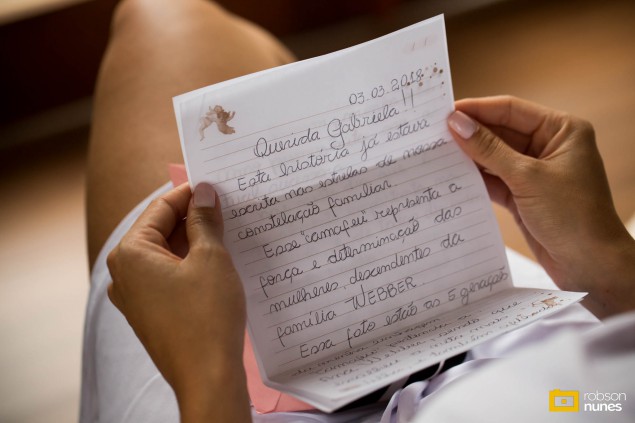 03.03.2018
Querida Gabriela!!
Esta história já estava
escrita nas estrelas de nossa
constelação familiar.
Esse "camafeu" representa a
força e determinação das
mulheres, descendentes da
família WEBBER
Essa foto estão as 5 geração
robson
nunes